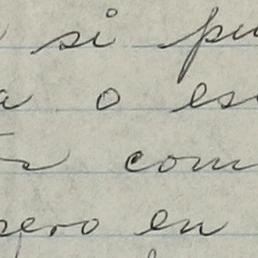 si pu
a o es
com
pero en